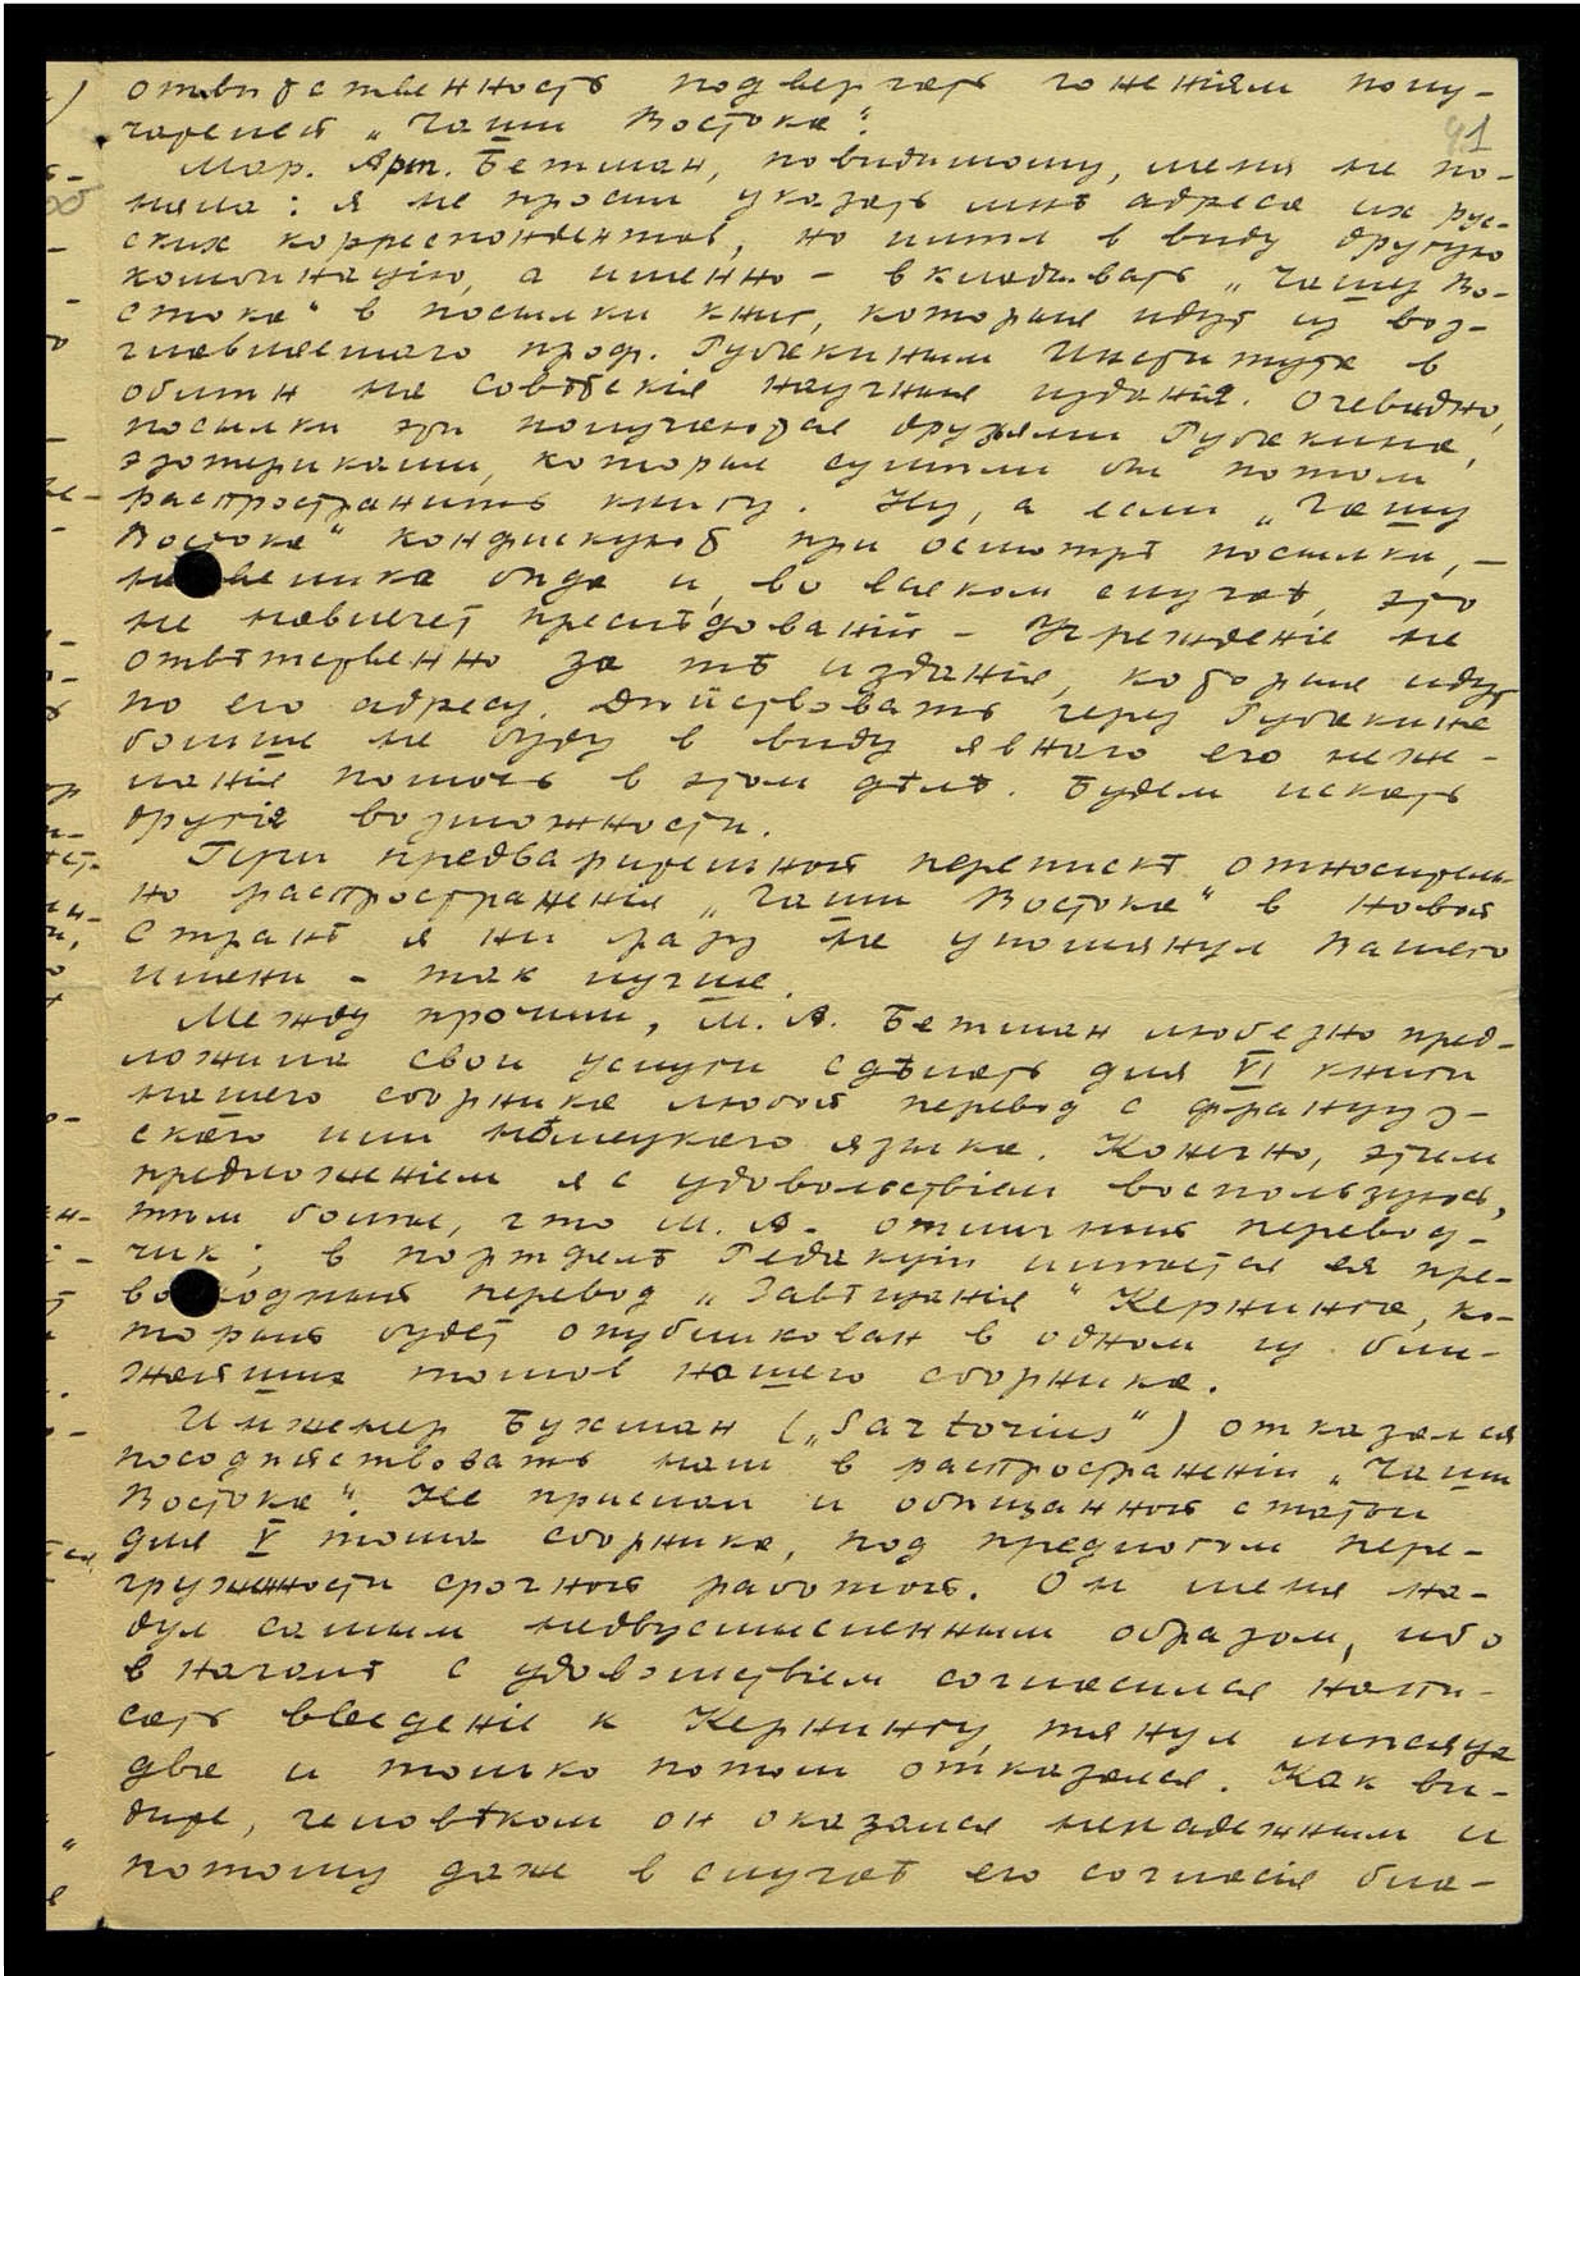 отвѣтственность подвергать гоненіям полу-
чателей „Чаши Востока“.
41
Мар. Арт. Бетман, повидимому, меня не по-
няла: я не просил указать мнѣ адреса их рус-
ских корреспондентов, но имѣл в виду другую
комбинацію, а именно - вкладывать „Чашу Во-
стока“ в посылки книг, которыя идут из воз-
главляемаго проф. Рубакиным Института в
обмѣн на совѣтскія научныя изданія. Очевидно,
посылки эти получаются друзьями Рубакина,
эзотериками, которые сумѣли бы потом
распространить книгу. Ну, а если „Чашу
Востока“ конфискуют при осмотрѣ посылки, -
не велика бѣда и, во всяком случаѣ, это
не навлечет преслѣдованій - Учрежденіе не
отвѣтственно за тѣ изданія, которыя идут
по его адресу. Дѣйствовать через Рубакина
больше не буду в виду явнаго его неже-
ланія помочь в этом дѣлѣ. Будем искать
другія возможности.
При предварительной перепискѣ относитель-
но распространенія „Чаши Востока“ в Новой
Странѣ я ни разу не упомянул Вашего
имени - так лучше.
Между прочим, М. А. Бетман любезно пред-
ложила свои услуги сдѣлать для VI книги
нашего сборника любой перевод с француз-
скаго или нѣмецкаго языка. Конечно, этим
предложеніем я с удовольствіем воспользуюсь,
тѣм болѣе, что М. А. отличный перевод-
чик; в портфелѣ Редакціи имѣется ея пре-
восходный перевод „Завѣщанія“ Кернинга, ко-
торый будет опубликован в одном из бли-
жайших томов нашего сборника.
Инженер Бухман („Sartorius“) отказался
посодѣйствовать нам в распространеніи „Чаши
Востока“. Не прислал и обѣщанной статьи
для V тома сборника, под предлогом пере-
груженности срочной работой. Он меня на-
дул самым недвусмысленным образом, ибо
вначалѣ с удовольствіем согласился напи-
сать введеніе к Кернингу, тянул мѣсяца
два и только потом отказался. Как ви-
дите, человѣком он оказался ненадежным и
потому даже в случаѣ его согласія бла-